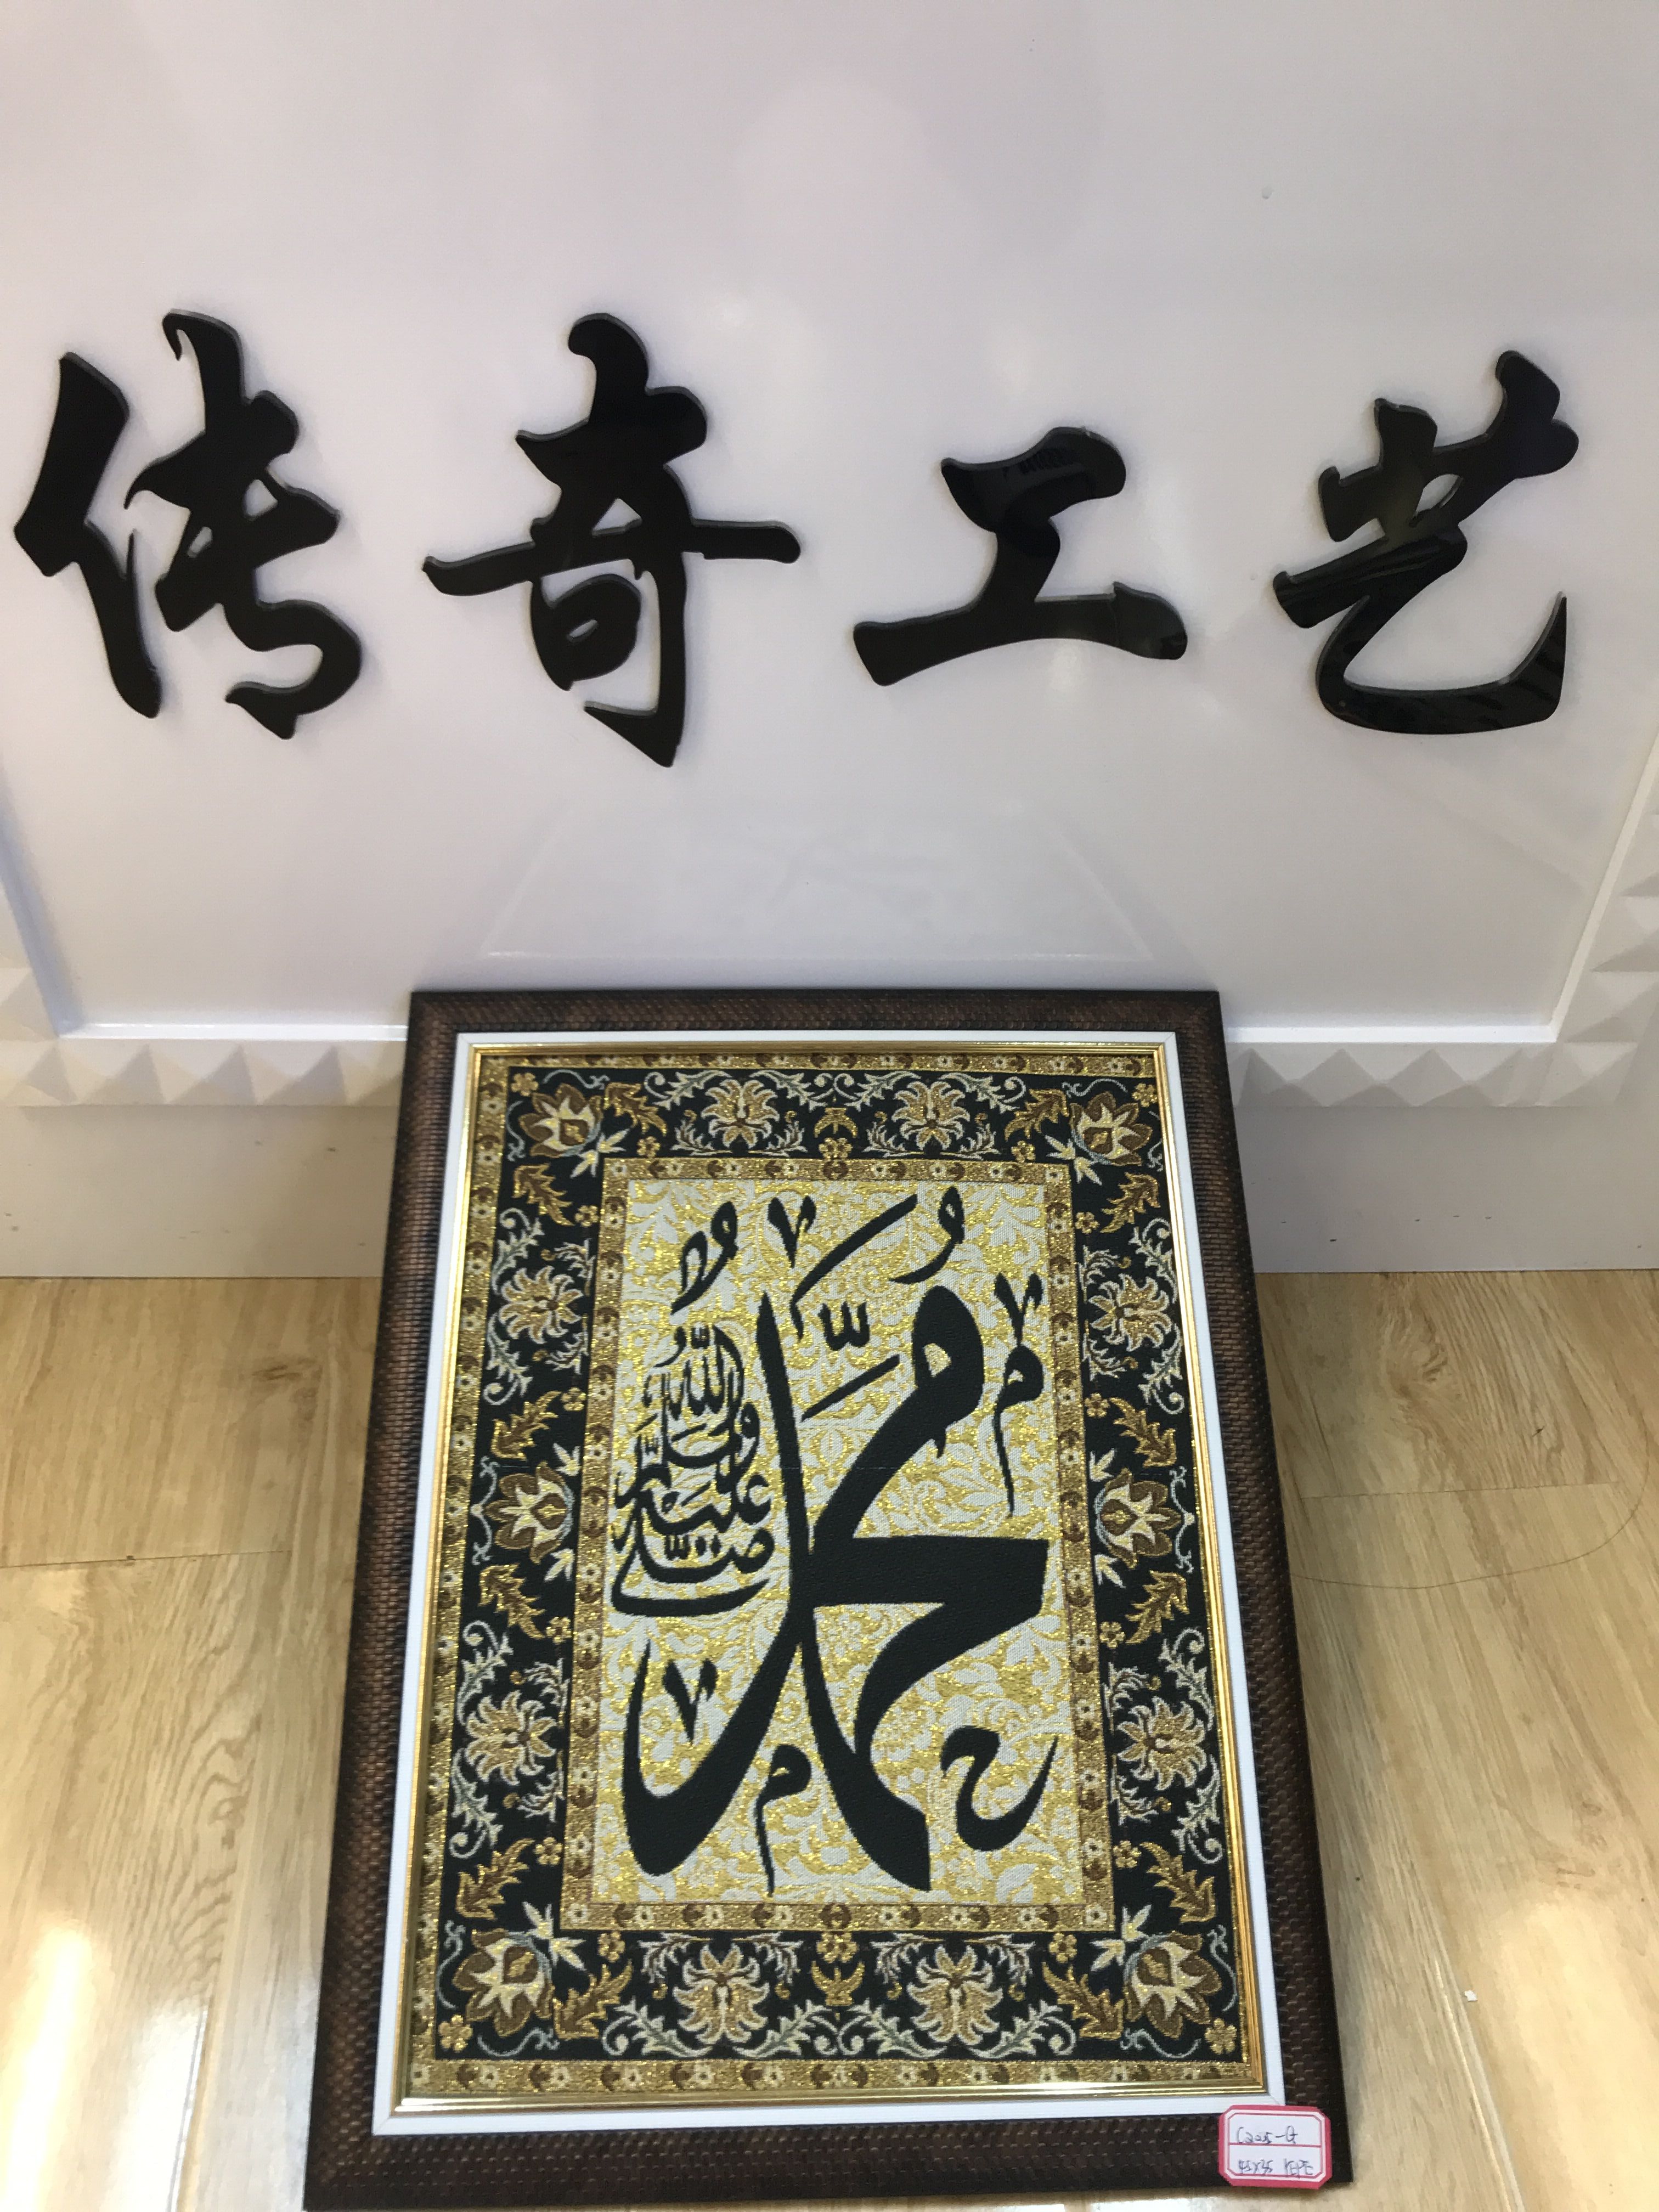 传奇工艺
محمد
صلى الله عليه وسلم
C225-G